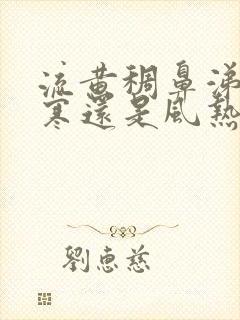 流黄稠鼻涕
寒還是風熱
劉惠慈